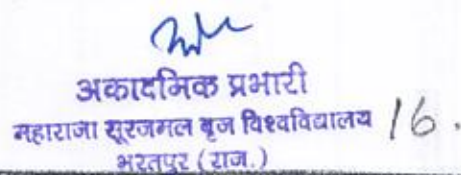 अकादमिक प्रभारी
महाराजा सूरजमल बृज विश्वविद्यालय 16.
भरतपुर (राज.)